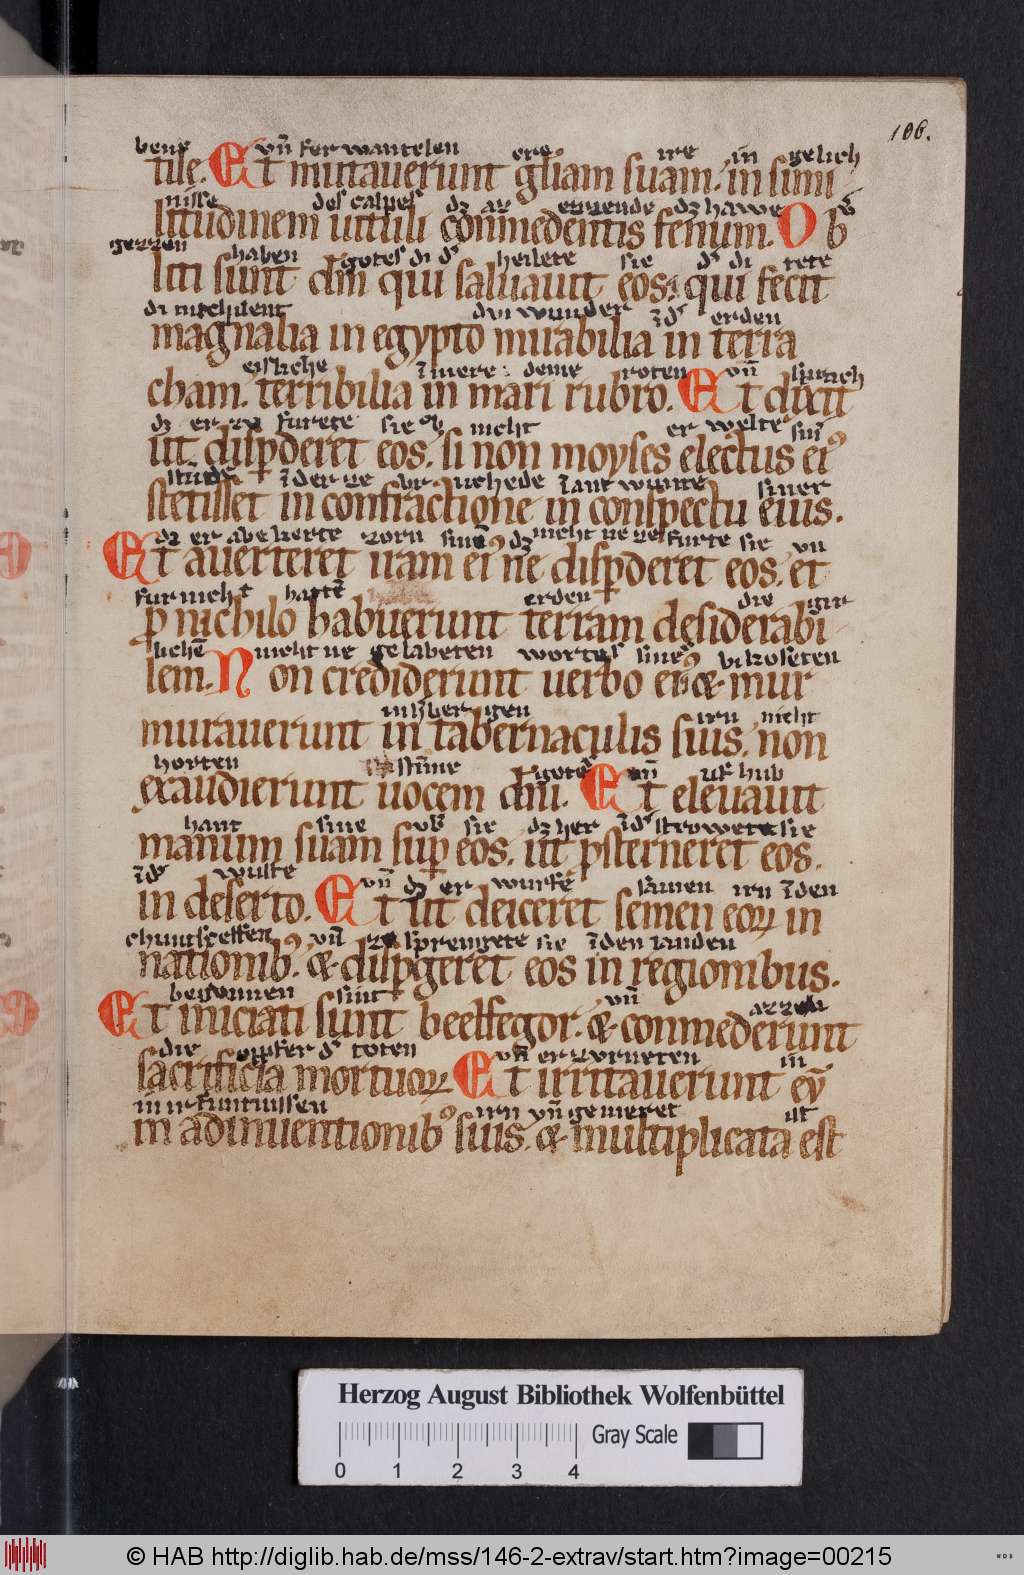 106.
bens vñ fer wantelen ere ire in gelich
tile. Et mutauerunt gliam suam. in simi
nisse des calpes dz az ezzende dz hawe
litudinem uituli conmedentis fenum. Ob
gezzen haben gotes di d' heilete sie d' di tete
liti sunt dm qui saluauit eos. qui fecit
di michilent dvi wunder ĩ d' erden
magnalia in egypto mirabilia in terra
eisliche ĩ mere deme roten vñ sprach
cham. terribilia in mari rubro. Et dixit
dz er zu furete sie ob nicht er welte sin
ut disperderet eos. si non moyses electus ei⁹
stũde ĩ der ze bruchede ĩ antwurte siner
stetisset in confractione in conspectu eius.
dz er abe kerte zorn sinẽ dz nicht ne zefurte sie vn
Et auerteret iram ei⁹ ne disperderet eos. et
fur nicht hattẽ erden die gir
p nichilo habuerunt terram desiderabi
lichẽ nicht ne gelabeten wortes sines vñ koseten
lem. Non crediderunt uerbo ei⁹ & mur
in herbergen irn nicht
murauerunt in tabernaculis suis. non
horten stĩme gotes vñ uf hub
exaudierunt uocem dni. Et eleuauit
hant sine vb' sie dz her ĩ d' strowete sie
manum suam sup eos. ut psterneret eos.
ĩ d' wuste vñ dz er wurfe samen irn ĩ den
in deserto. Et ut deiceret semen eoꝝ in
chuntscheffen vñ ze sprengete sie ĩ den landen
nationib⁹. & dispgeret eos in regionibus.
begonnen sint vñ azzen
Et iniciati sunt beelfegor. & conmederunt
die oppfer d' toten vñ erzurneten in
sacrificia mortuoꝝ Et irritauerunt eṽ
in ir funtnissen irn vñ gemeret ist
in adinuentionib⁹ suis. & multiplicata est
Herzog August Bibliothek Wolfenbüttel
Gray Scale
0 1 2 3 4
© HAB http://diglib.hab.de/mss/146-2-extrav/start.htm?image=00215